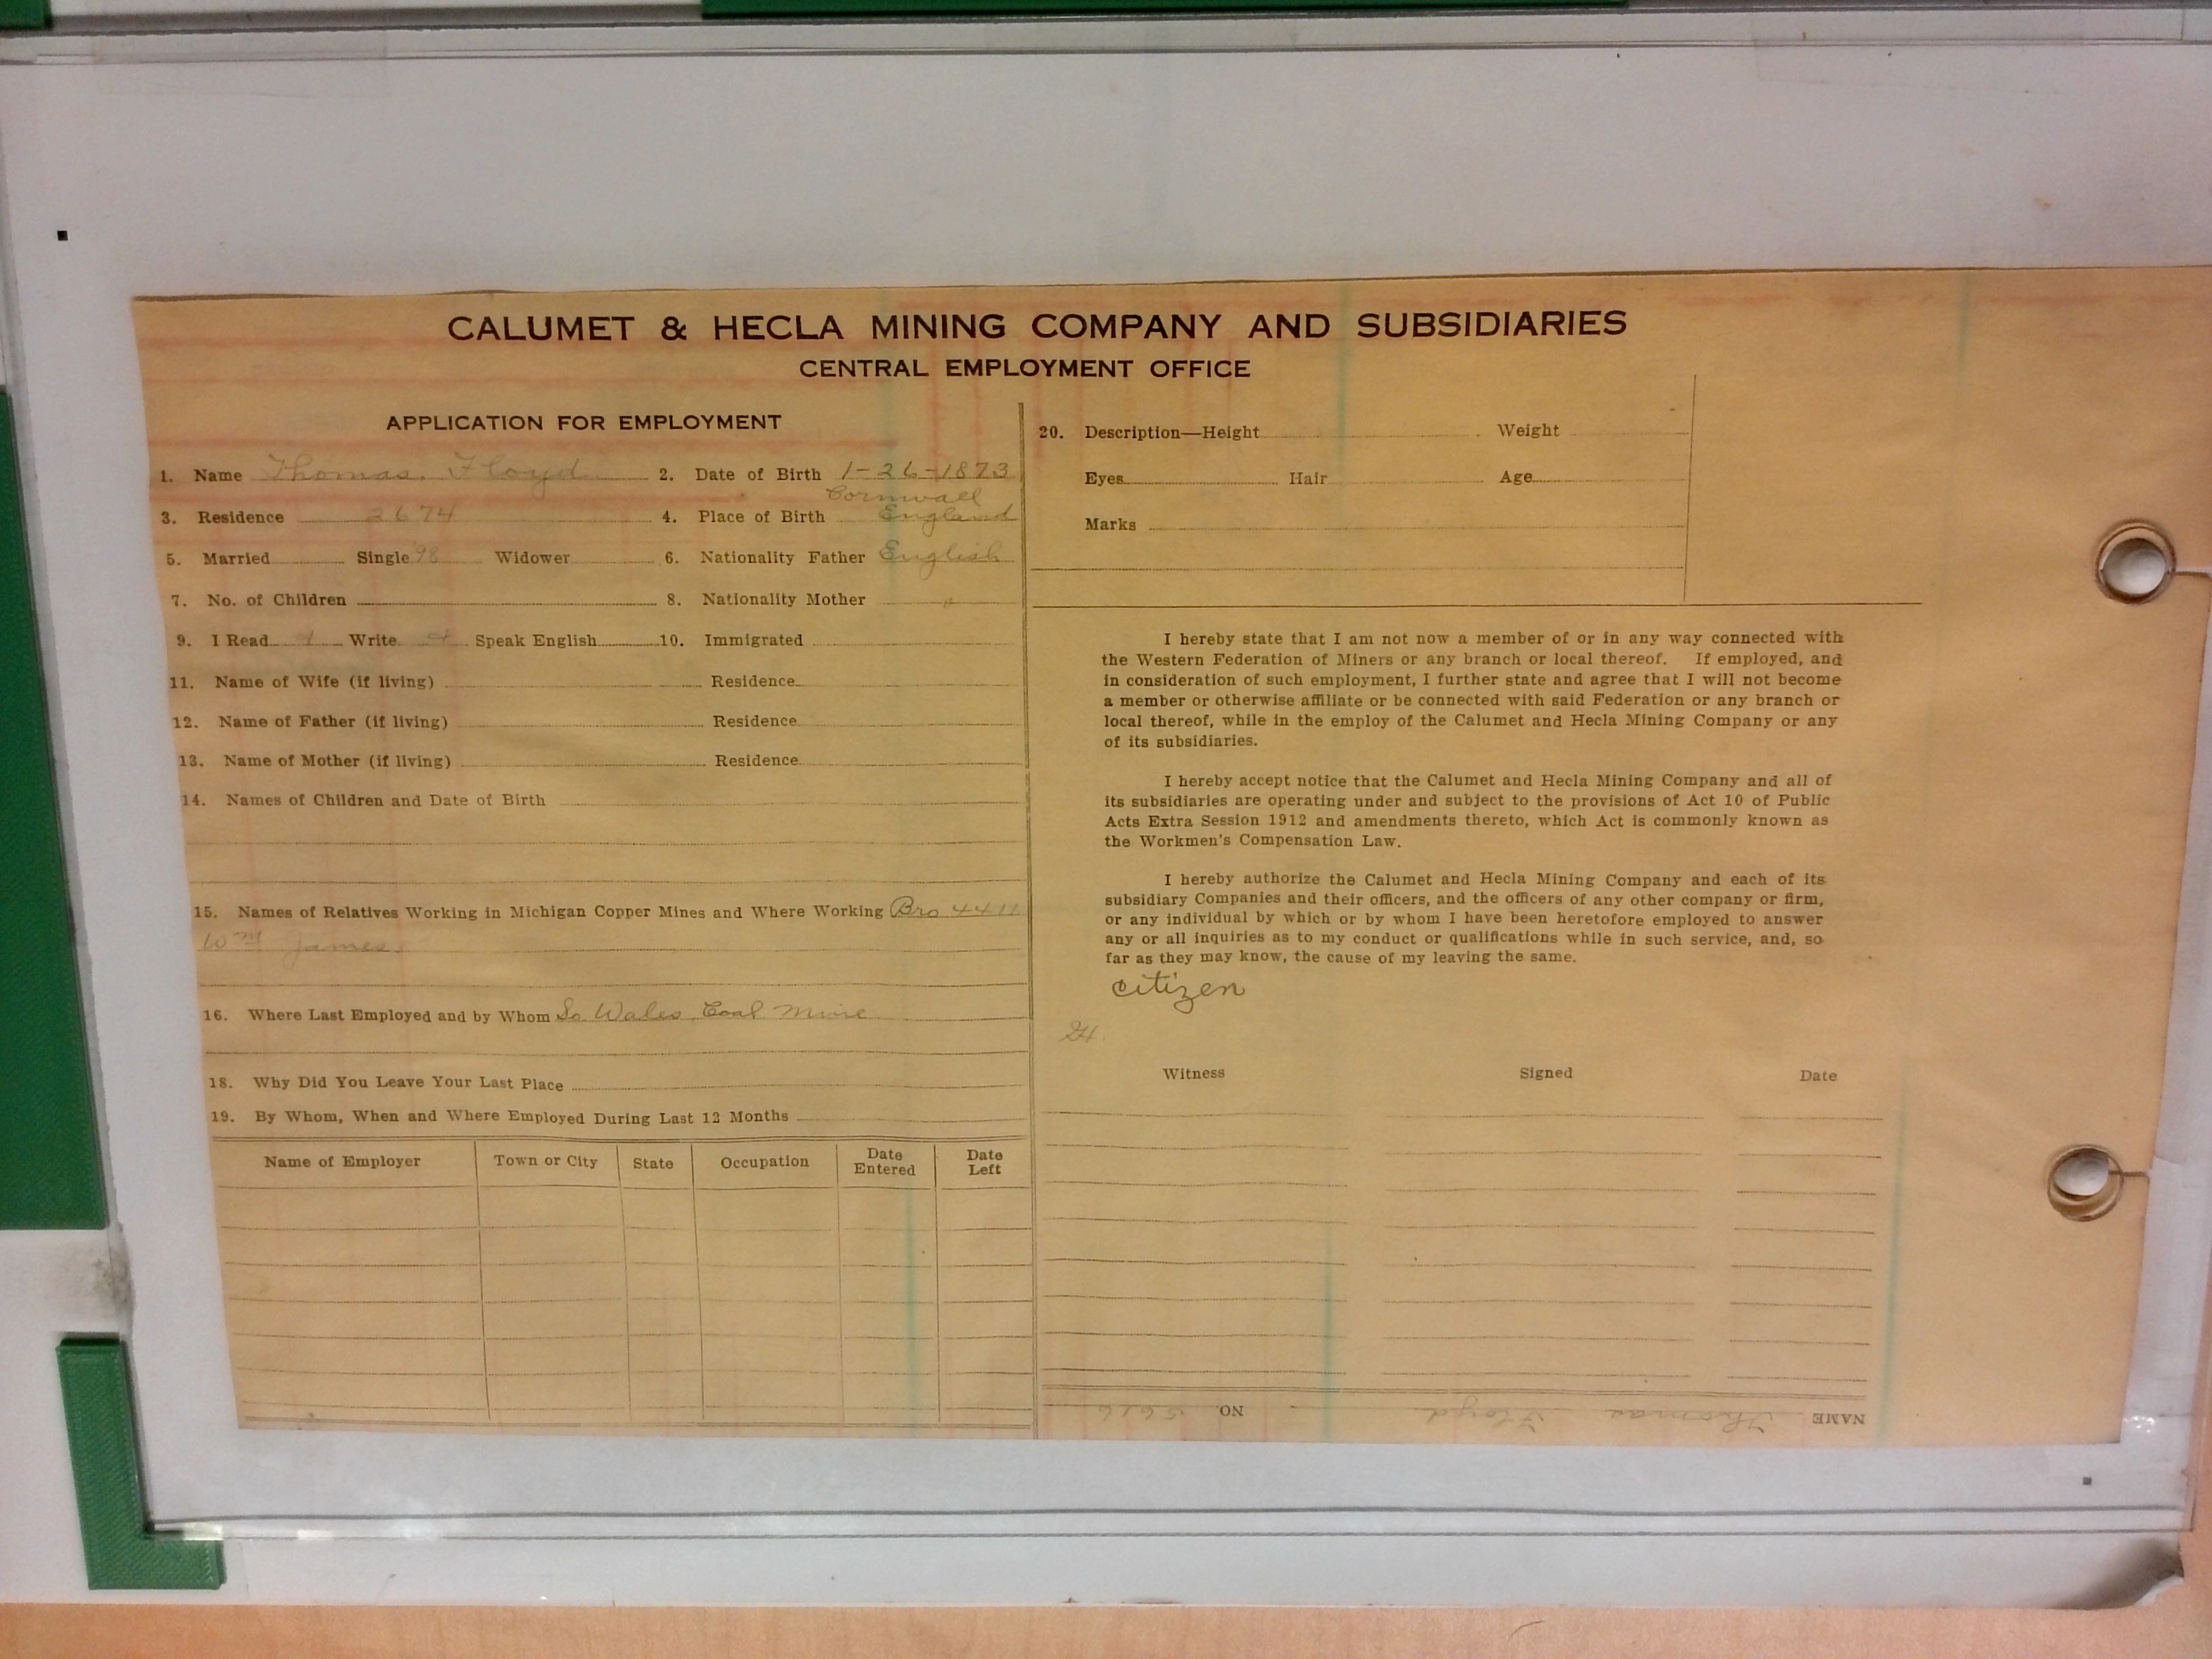 CALUMET & HECLA MINING COMPANY AND SUBSIDIARIES
CENTRAL EMPLOYMENT OFFICE
APPLICATION FOR EMPLOYMENT
1. Name Thomas. Floyd 2. Date of Birth 1-26-1873
3. Residence 2674 4. Place of Birth Cornwall England
5. Married Single '98 Widower 6. Nationality Father English
7. No. of Children 8. Nationality Mother "
9. I Read Write Speak English 10. Immigrated
11. Name of Wife (if living) Residence
12. Name of Father (if living) Residence
13. Name of Mother (if living) Residence
14. Names of Children and Date of Birth
15. Names of Relatives Working in Michigan Copper Mines and Where Working Bro 4411
Wm James.
16. Where Last Employed and by Whom So. Wales. Coal Mine
18. Why Did You Leave Your Last Place
19. By Whom, When and Where Employed During Last 12 Months
Name of Employer Town or City State Occupation Date Entered Date Left
20. Description—Height Weight
Eyes Hair Age
Marks
I hereby state that I am not now a member of or in any way connected with
the Western Federation of Miners or any branch or local thereof. If employed, and
in consideration of such employment, I further state and agree that I will not become
a member or otherwise affiliate or be connected with said Federation or any branch or
local thereof, while in the employ of the Calumet and Hecla Mining Company or any
of its subsidiaries.
I hereby accept notice that the Calumet and Hecla Mining Company and all of
its subsidiaries are operating under and subject to the provisions of Act 10 of Public
Acts Extra Session 1912 and amendments thereto, which Act is commonly known as
the Workmen's Compensation Law.
I hereby authorize the Calumet and Hecla Mining Company and each of its
subsidiary Companies and their officers, and the officers of any other company or firm,
or any individual by which or by whom I have been heretofore employed to answer
any or all inquiries as to my conduct or qualifications while in such service, and, so
far as they may know, the cause of my leaving the same.
citizen
Witness Signed Date
NAME Thomas Floyd NO. 5616